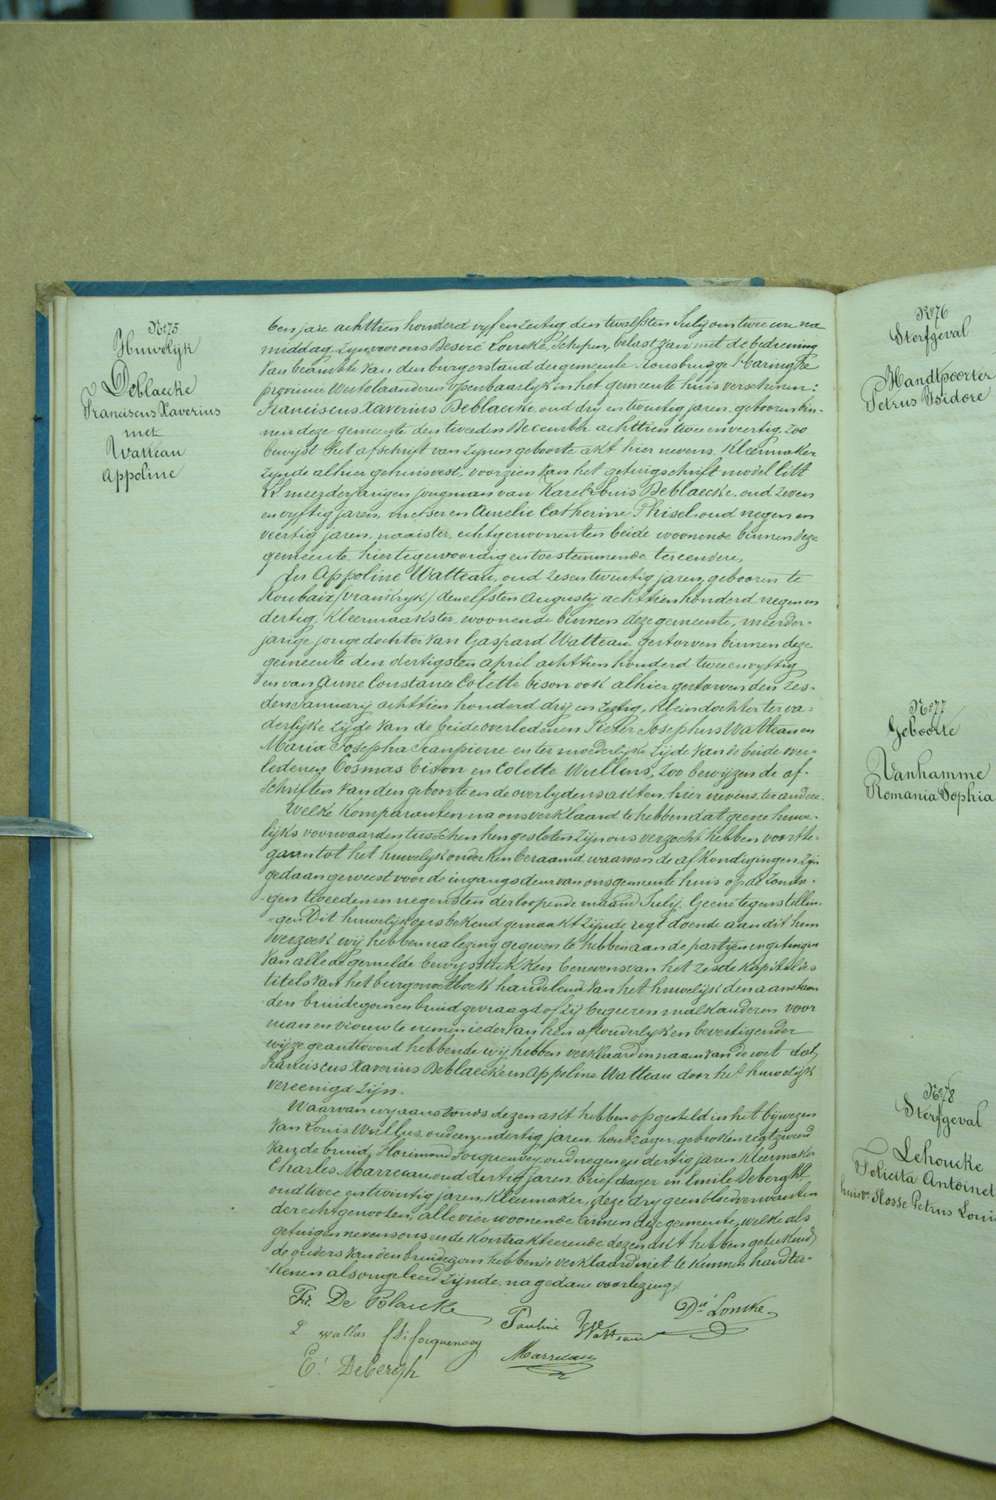 No 75
Huwelijk
Deblaecke
Franciscus Xaverius
met
Watteau
Appoline
Ten jare achttien honderd vyf en zestig, den twaalfsten July om twee uren na
middag, zyn voor ons Desiré Loncke, Schepen, belast zijnde met de bediening
van beambte van den burgerstand der gemeente Rousbrugge Haringhe
provincie Westvlaanderen openbaarlyk in het gemeente huis verschenen:
Franciscus Xaverius Deblaecke, oud dry en twintig jaren, geboren bin-
nen deze gemeente den tweeden December achttien twee en veertig, zoo
bewijst het afschrift van zynen geboorte akt hier nevens, kleermaker
zynde alhier gehuisvest, voorzien van het getuigschrift model litt
meerderjarigen jongman van Karel Louis Deblaecke, oud zeven
en vyftig jaren, metser en Amelie Catherine oud negen en
veertig jaren, naaister, echtgenooten beide woonende binnen deze
gemeente, hier tegenwoordig en toestemmende ter eender,
En Appoline Watteau, oud zes en twintig jaren, gebooren te
Roubaix (vrankryk) den elfsten Augusty achttien honderd negen en
dertig, kleermaakster, woonende binnen deze gemeente, meerder-
jarige jonge dochter van Gaspard Watteau gestorven binnen deze
gemeente den dertigsten April achttien honderd twee en vyftig
en van Anne Constance Colette Cison ook alhier gestorven den zes-
den January achttien honderd drij en zestig, kleindochter ter va-
derlyke zyde van de beide overledenen Pieter Josephus Watteau en
Maria Josepha Jeanpierre en ter moederlyke zyde van de beide over-
ledenen Cosmas Cison en Colette Wullens, zoo bewyzen de af-
schriften van den geboorte en de overlydens akten, hier nevens, ter andere.
Welke komparanten na ons verklaard te hebben dat geene huwe-
lijks voorwaarden tusschen hen gesloten zyn ons verzocht hebben voort te
gaan tot het huwelyk onder hen beraamd, waarvan de afkondigingen zyn
gedaan geweest voor de ingangsdeur van ons gemeente huis op de zonda-
gen tweeden en negensten der loopende maand July. Geene tegenstellin-
gen dit huwelyk ons bekend gemaakt zynde regt doende aan dit hun
verzoek wij hebben na lezing gegeven te hebben aan de partyen en getuigen
van alle de gemelde bewysstukken benevens van het zesde kapittel des
titels van het burger wetboek handelende van het huwelyk den aanstaan
den bruidegom en bruid gevraagd of zij begeeren malkanderen voor
man en vrouw te nemen ieder van hen afzonderlyk en bevestigender
wyze geantwoord hebbende wij hebben verklaard in naam van de wet dat
Franciscus Xaverius Deblaecke en Appoline Watteau door het huwelijk
vereenigd zijn.
Waarvan wy aanstonds dezen akt hebben opgesteld in het bijwezen
van Louis Wullus, oud een en dertig jaren, houtzager, gebroken regtzweerd
van de bruid, Florimond Forquenoy, oud negen en dertig jaren kleermaker
Charles Marreau oud dertig jaren, briefdrager en Emile Debergh
oud twee en twintig jaren, kleermaker, deze dry geen bloedverwanten
der echtgenooten, alle vier woonende binnen deze gemeente, welke als
getuigen nevens ons en de kontrakteerende dezen akt hebben geteekend
de ouders van den bruidegom hebbende verklaard niet te kunnen handtee-
kenen als ongeleerd zynde, na gedane voorlezing.
Fr. De Blaecke
Pauline Watteau
Dré Loncke
L wallus
f. Forquenoy
Marreau
E. Debergh
No 76
Sterfgeval
Handtpoorter
Petrus Isidore
No 77
Geboorte
Vanhamme
Romania Sophia
No 78
Sterfgeval
Lehoucke
Felicita Antoinet
huisv. Stosse Petrus Loui